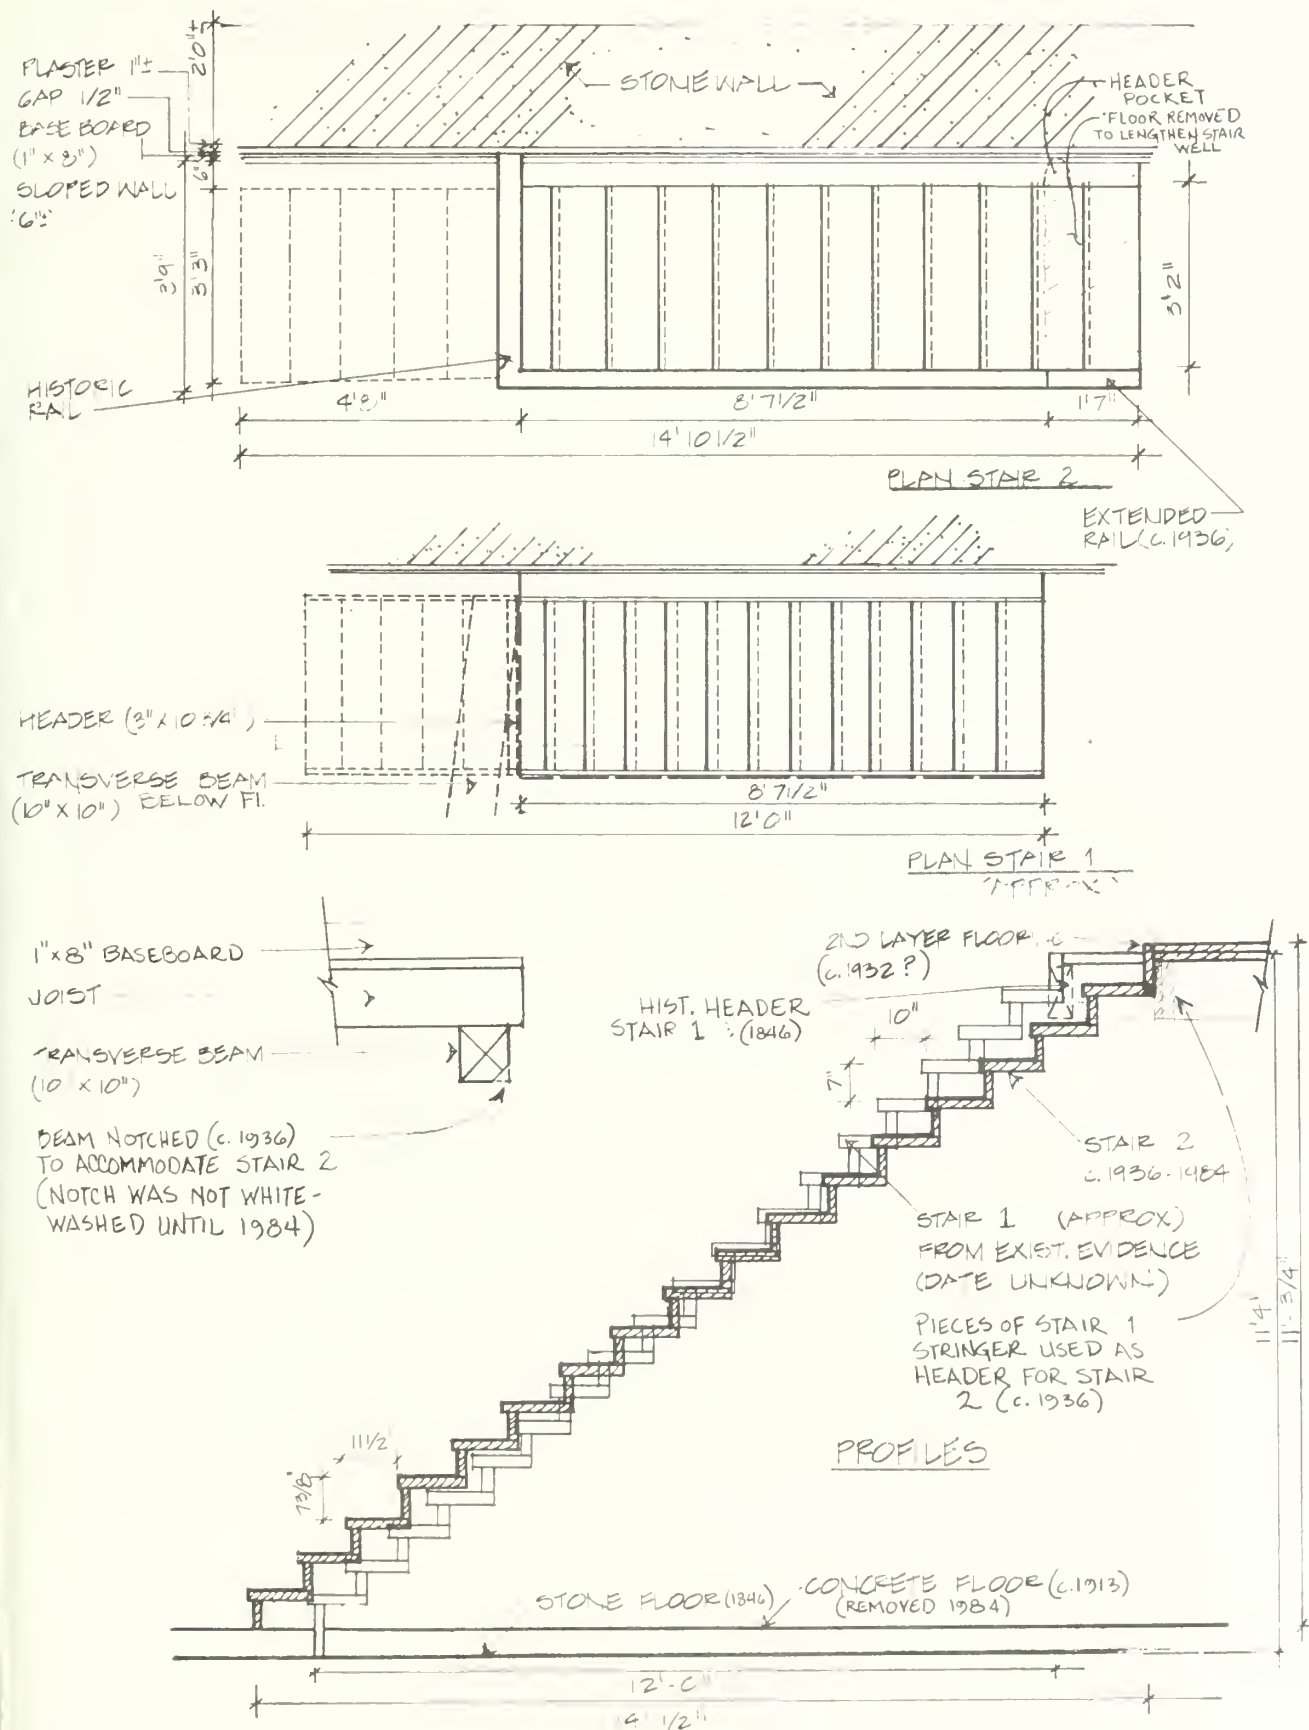 2'0"±
PLASTER 1"±
GAP 1/2"
BASE BOARD
(1" x 8")
SLOPED WALL
6"±
6"
STONE WALL
HEADER
POCKET
FLOOR REMOVED
TO LENGTHEN STAIR
WELL
3'9"
3'3"
3'2"
HISTORIC
RAIL
4'8"
8'7 1/2"
1'7"
14'10 1/2"
PLAN STAIR 2
EXTENDED
RAIL (c.1936)
HEADER (3" x 10 3/4")
TRANSVERSE BEAM
(10" x 10") BELOW Fl.
8'7 1/2"
12'0"
PLAN STAIR 1
(APPROX)
1" x 8" BASEBOARD
JOIST
TRANSVERSE BEAM
(10" x 10")
BEAM NOTCHED (c. 1936)
TO ACCOMMODATE STAIR 2
(NOTCH WAS NOT WHITE-
WASHED UNTIL 1984)
2ND LAYER FLOOR
(c.1932?)
HIST. HEADER
STAIR 1 (1846)
10"
7"
STAIR 2
c.1936-1984
STAIR 1 (APPROX)
FROM EXIST. EVIDENCE
(DATE UNKNOWN)
PIECES OF STAIR 1
STRINGER USED AS
HEADER FOR STAIR
2 (c. 1936)
11'4"
11'-3/4"
11 1/2
7 3/8"
PROFILES
STONE FLOOR (1846)
CONCRETE FLOOR (c.1913)
(REMOVED 1984)
12'-0"
1/2"